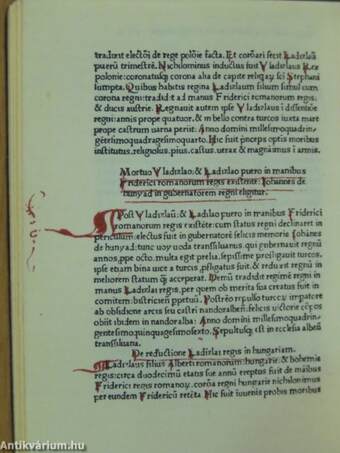 tradidit electōi de rege polōie facta. Et corōari fecit Ladislaū
puerū trimestrē. Nichilominus inductus fuit Vladislaus Rex
polonie: coronatusq; corona alia de capite reliq̄ay sci Stephani
sumpta. Quibus habitis regina Ladislaum filium simul cum
corona regni: tradidit ad manus Friderici romanorum regis:
& ducis austrie. Regnauit autem ipse Vladislaus ī dissensiōe
regni: annis prope quatuor. & in bello contra turcos iuxta mare
prope castrum uarna periit. Anno domini millesimoquadrin-
gētesimoquadragesimoquarto. Hic fuit īceps optis moribus
institutus, religiosus, pius, castus, uerax & magnāimus ī armis.
Mortuo Vladislao: & Ladislao puero in manibus
Friderici romanorum regis existente: Iohannes de
hunyad in gubernatorem regni eligitur.
Post Vladislaū: & Ladislao puero in manibus Friderici
romanorum regis existēte: cum status regni declinaret in
periculum: electus fuit in gubernatorē felicis memorie Iohannes
de hunyad: tunc uoyuoda transiluanus. qui gubernauit regnū
annos, ppe octo. multa egit prelia, sepissime profligauit turcos,
ipse etiam bina uice a turcis, pfligatus fuit, & reduxit regnū in
meliorem statum q̄ acceperat. Demū tradidit regimē regni in
manus Ladislai regis, per quem ob merita sua creatus fuit in
comitem: bistriceñ ppetuū. Postreō repulso turcoy impatore
ab obsidione arcis seu castri nandoralbeñ: tercia die crucis ocyos
obiit ibidem in nandoralba: Anno domini millesimoquadrin-
gentesimoquinquagesimosexto. Sepultusq; est in ecclesia albeñ
transiluana.
De reductione Ladislai regis in hungariam.
Ladislaus filius Alberti romanorum: hungarie: & bohemie
regis: circa duodecimū etatis sue annū ereptus fuit de manibus
Friderici regis romanoy. corōa regni hungarie nichilonimus
per eundem Fridericū retēta. Hic fuit iuuenis probis moribus
Antikvárium.hu